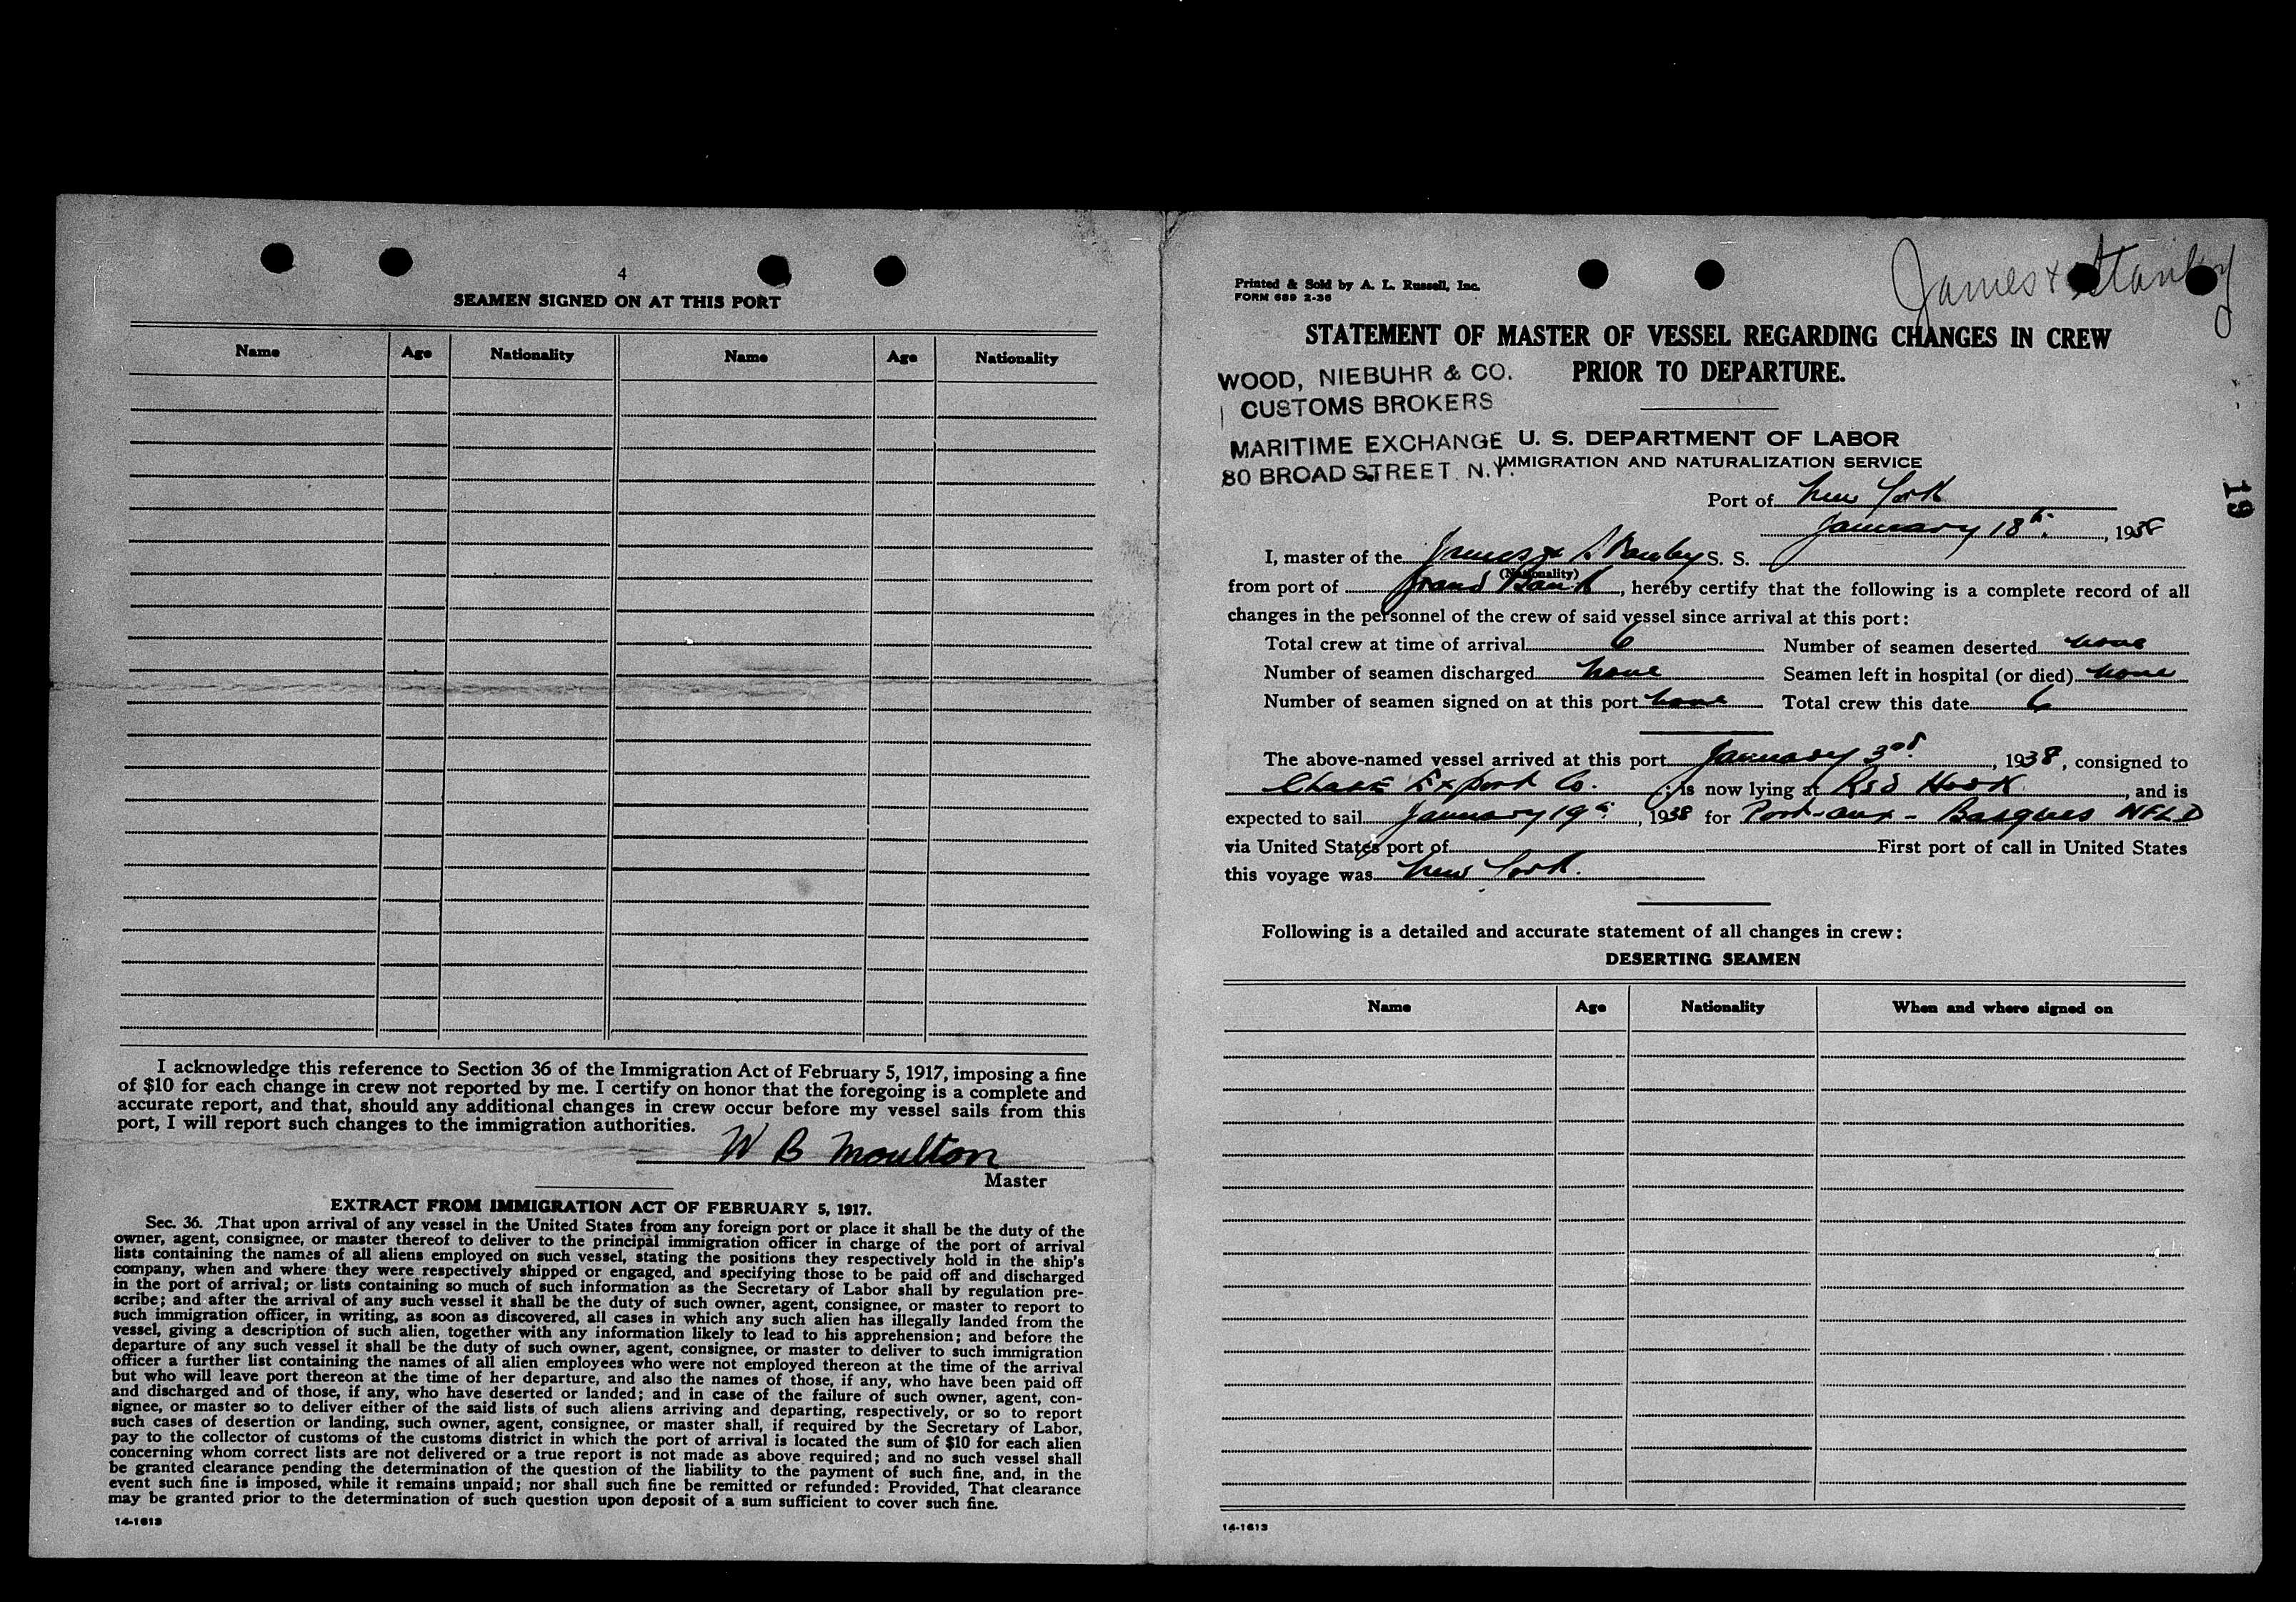 4
SEAMEN SIGNED ON AT THIS PORT
Name Age Nationality Name Age Nationality
I acknowledge this reference to Section 36 of the Immigration Act of February 5, 1917, imposing a fine
of $10 for each change in crew not reported by me. I certify on honor that the foregoing is a complete and
accurate report, and that, should any additional changes in crew occur before my vessel sails from this
port, I will report such changes to the immigration authorities.
W B Moulton
Master
EXTRACT FROM IMMIGRATION ACT OF FEBRUARY 5, 1917.
Sec. 36. That upon arrival of any vessel in the United States from any foreign port or place it shall be the duty of the
owner, agent, consignee, or master thereof to deliver to the principal immigration officer in charge of the port of arrival
lists containing the names of all aliens employed on such vessel, stating the positions they respectively hold in the ship's
company, when and where they were respectively shipped or engaged, and specifying those to be paid off and discharged
in the port of arrival; or lists containing so much of such information as the Secretary of Labor shall by regulation pre-
scribe; and after the arrival of any such vessel it shall be the duty of such owner, agent, consignee, or master to report to
such immigration officer, in writing, as soon as discovered, all cases in which any such alien has illegally landed from the
vessel, giving a description of such alien, together with any information likely to lead to his apprehension; and before the
departure of any such vessel it shall be the duty of such owner, agent, consignee, or master to deliver to such immigration
officer a further list containing the names of all alien employees who were not employed thereon at the time of the arrival
but who will leave port thereon at the time of her departure, and also the names of those, if any, who have been paid off
and discharged and of those, if any, who have deserted or landed; and in case of the failure of such owner, agent, con-
signee, or master so to deliver either of the said lists of such aliens arriving and departing, respectively, or so to report
such cases of desertion or landing, such owner, agent, consignee, or master shall, if required by the Secretary of Labor,
pay to the collector of customs of the customs district in which the port of arrival is located the sum of $10 for each alien
concerning whom correct lists are not delivered or a true report is not made as above required; and no such vessel shall
be granted clearance pending the determination of the question of the liability to the payment of such fine, and, in the
event such fine is imposed, while it remains unpaid; nor shall such fine be remitted or refunded: Provided, That clearance
may be granted prior to the determination of such question upon deposit of a sum sufficient to cover such fine.
14-1613
James & Stanley
Printed & Sold by A. L. Russell, Inc.
FORM 689 2-36
STATEMENT OF MASTER OF VESSEL REGARDING CHANGES IN CREW
PRIOR TO DEPARTURE.
WOOD, NIEBUHR & CO.
CUSTOMS BROKERS
MARITIME EXCHANGE
80 BROAD STREET N.Y.
U. S. DEPARTMENT OF LABOR
IMMIGRATION AND NATURALIZATION SERVICE
19
Port of New York
January 18th, 1938
I, master of the James & Stanley S. S.
(Nationality)
from port of Grand Bank, hereby certify that the following is a complete record of all
changes in the personnel of the crew of said vessel since arrival at this port:
Total crew at time of arrival 6 Number of seamen deserted none
Number of seamen discharged none Seamen left in hospital (or died) none
Number of seamen signed on at this port none Total crew this date 6
The above-named vessel arrived at this port January 3rd, 1938, consigned to
Export Co.; is now lying at Red Hook, and is
expected to sail January 19th, 1938 for Port-aux-Basques NFLD
via United States port of First port of call in United States
this voyage was New York.
Following is a detailed and accurate statement of all changes in crew:
DESERTING SEAMEN
Name Age Nationality When and where signed on
14-1613